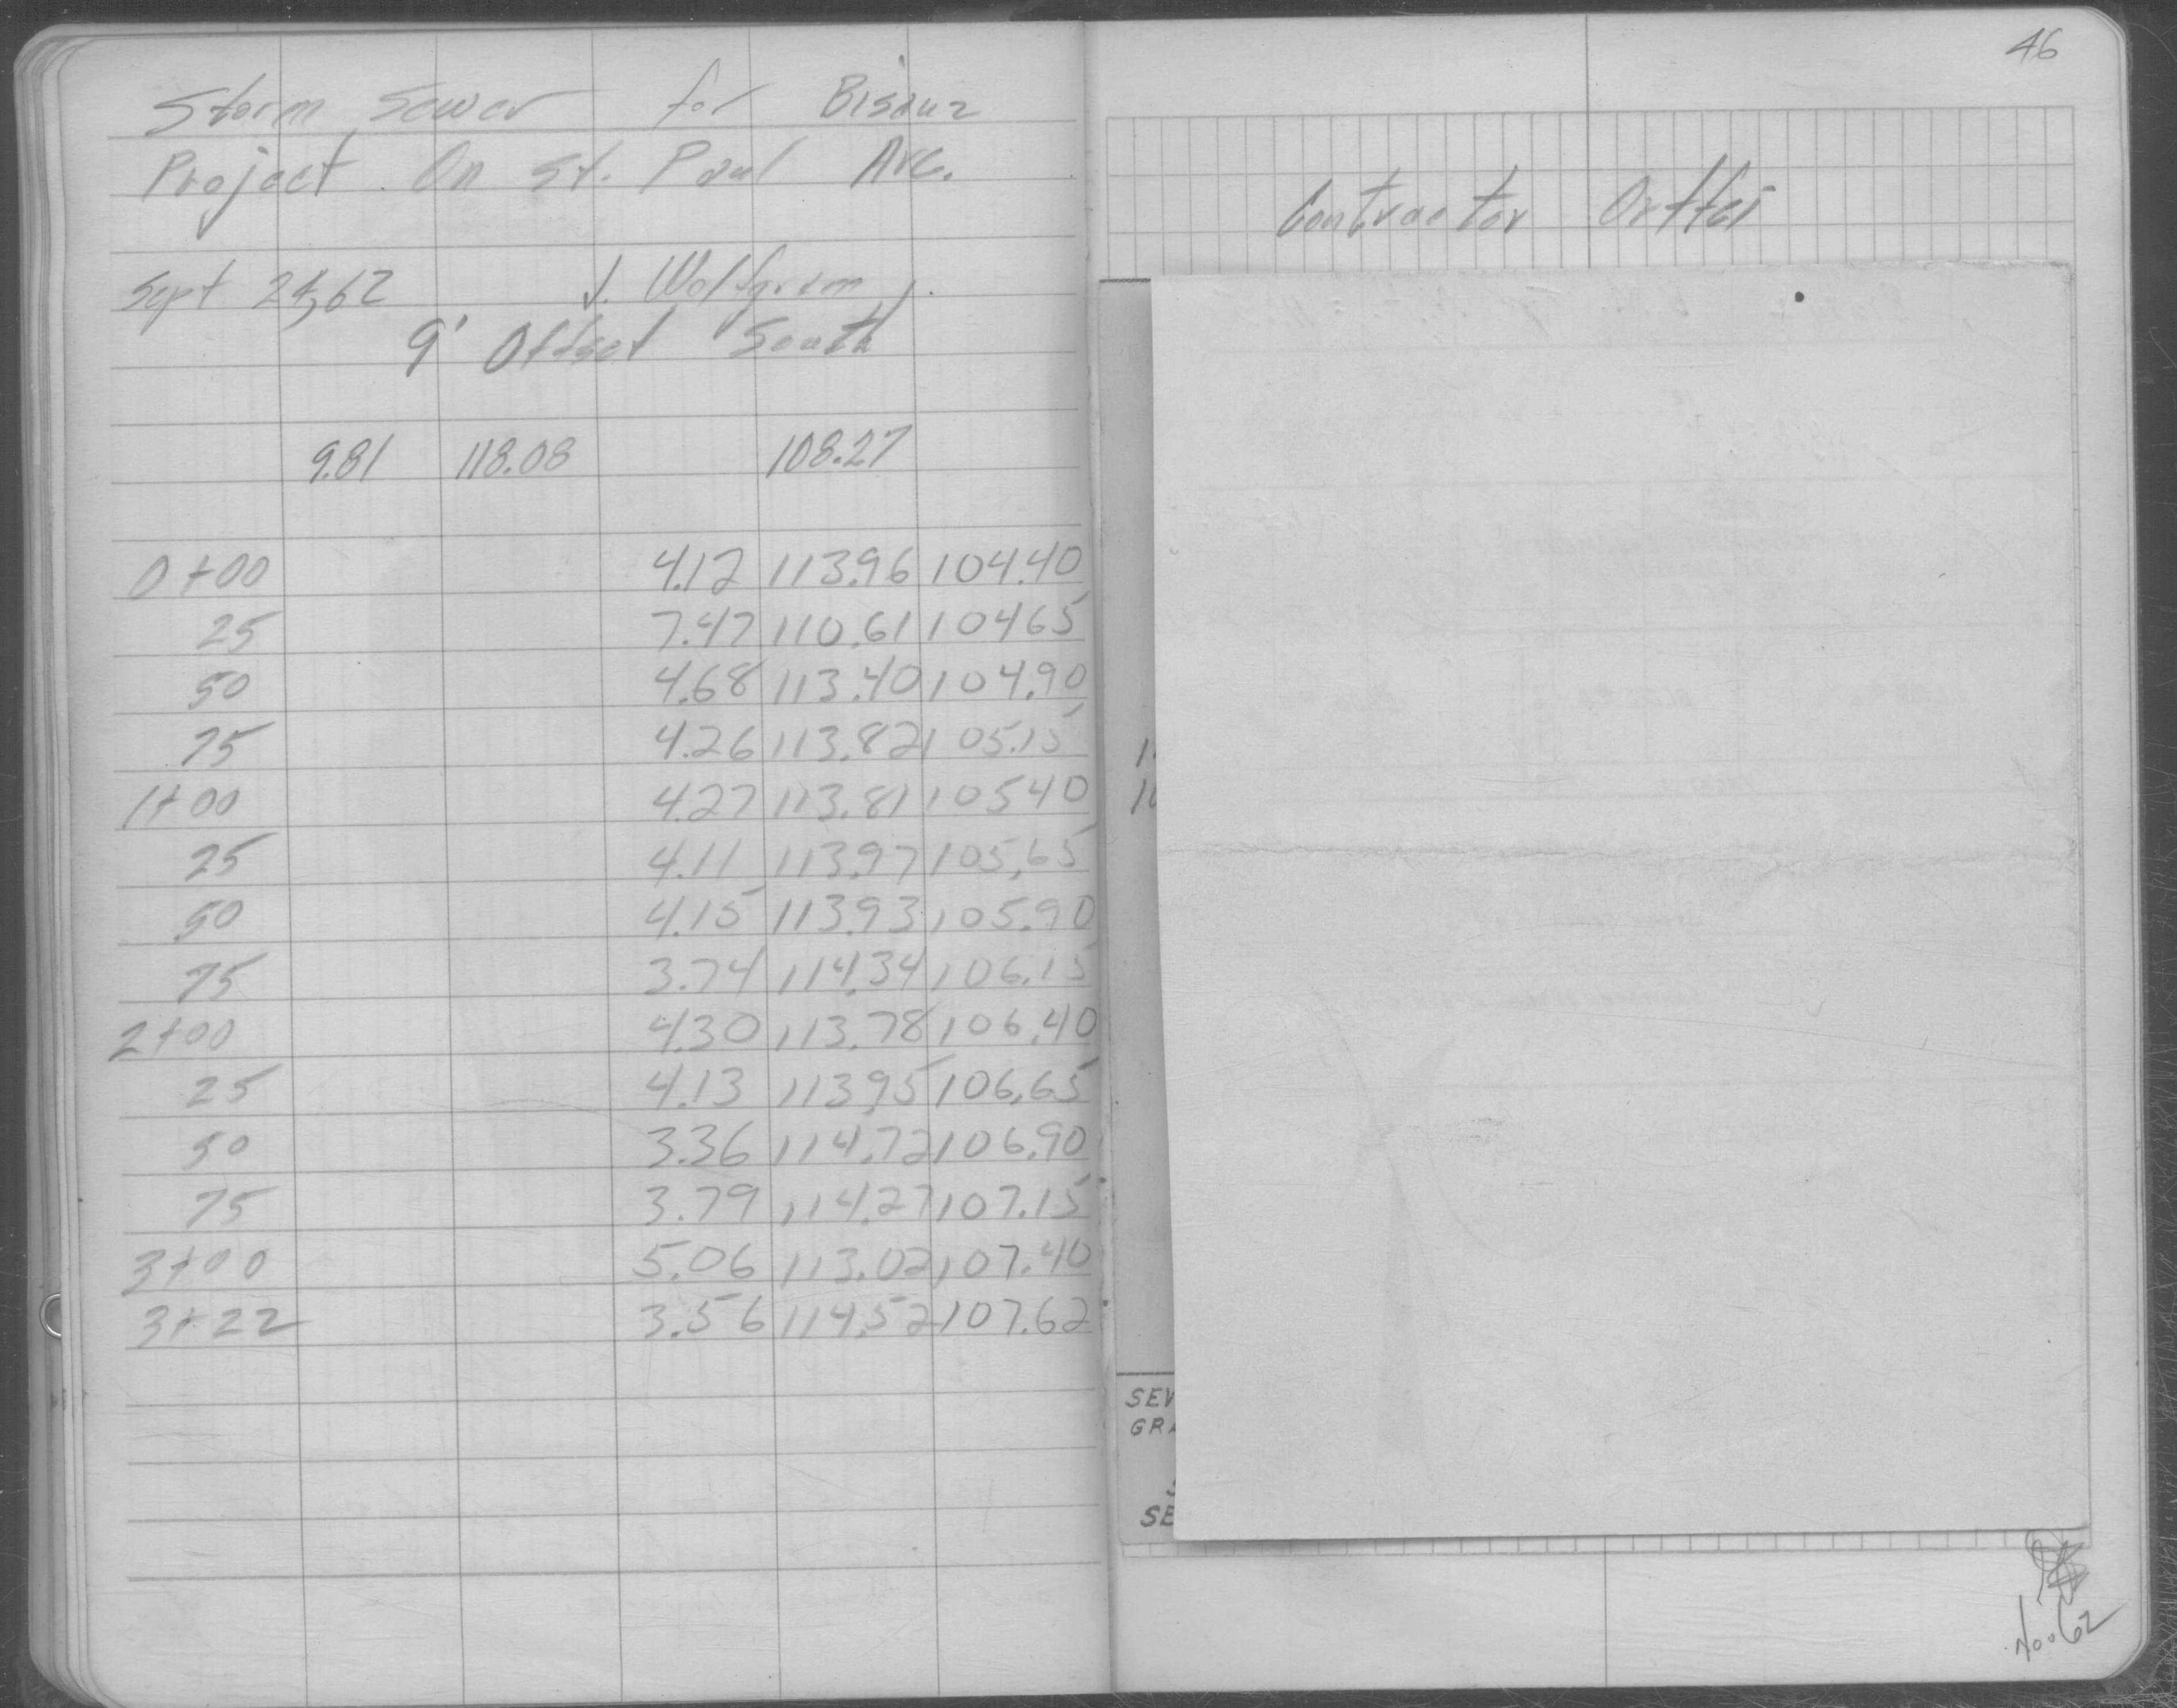 46
Storm Sewer for
Project On St. Paul Ave.
Contractor
Sept 24, 62 J. Wolfgram
9' Offset South
9.81 118.08 108.27
0+00 4.12 113.96 104.40
25 7.47 110.61 104 65
50 4.68 113.40 104.90
75 4.26 113.82 105.15
1+00 4.27 113.81 105 40
25 4.11 113.97 105.65
50 4.15 113.93 105.90
75 3.74 114.34 106.15
2+00 4.30 113.78 106.40
25 4.13 113.95 106.65
50 3.36 114.72 106.90
75 3.79 114.27 107.15
3+00 5.06 113.02 107.40
3+22 3.56 114.52 107.62
SEW
GRA
SE